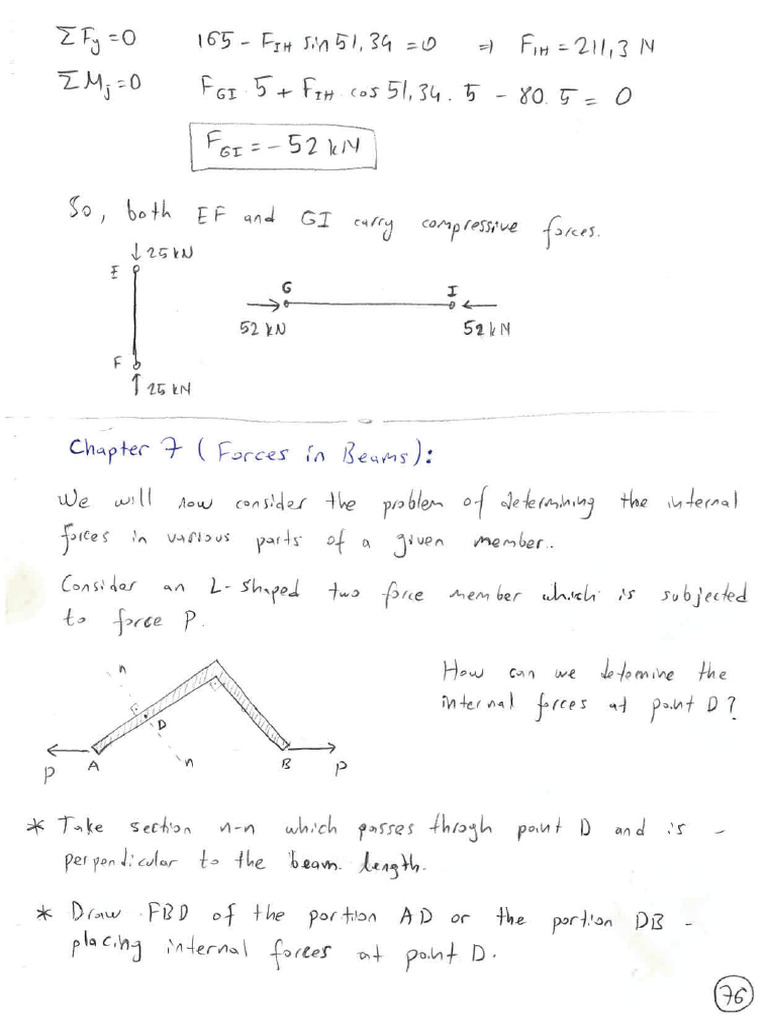 ΣFy=0 165 - F_IH sin 51,34 = 0 ⇒ F_IH = 211,3 N
ΣMj=0 F_GI · 5 + F_IH · cos 51,34 . 5 - 80. 5 = 0
F_GI = - 52 kN
So, both EF and GI carry compressive forces.
↓ 25 kN
E
G I
52 kN 52 kN
F
↑ 25 kN
Chapter 7 (Forces in Beams):
We will now consider the problem of determining the internal
forces in various parts of a given member..
Consider an L-shaped two force member which is subjected
to force P.
How can we detomine the
internal forces at point D?
n
D
P A n B P
* Take section n-n which passes throgh point D and is -
perpendicular to the beam length.
* Draw FBD of the portion AD or the portion DB -
placing internal forces at point D.
76